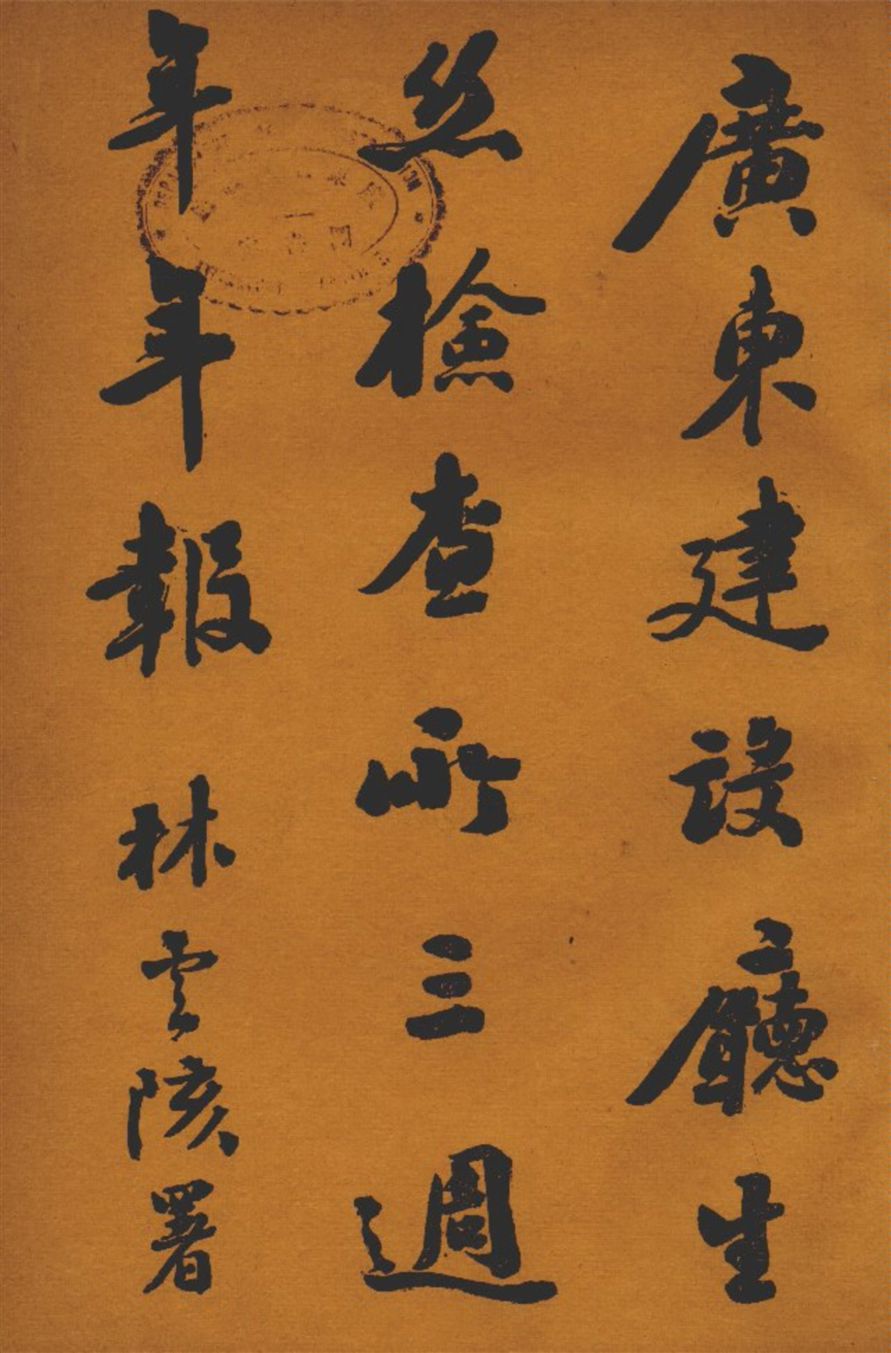 廣東建設廳生
絲檢查所三週
年年報 林雲陔署